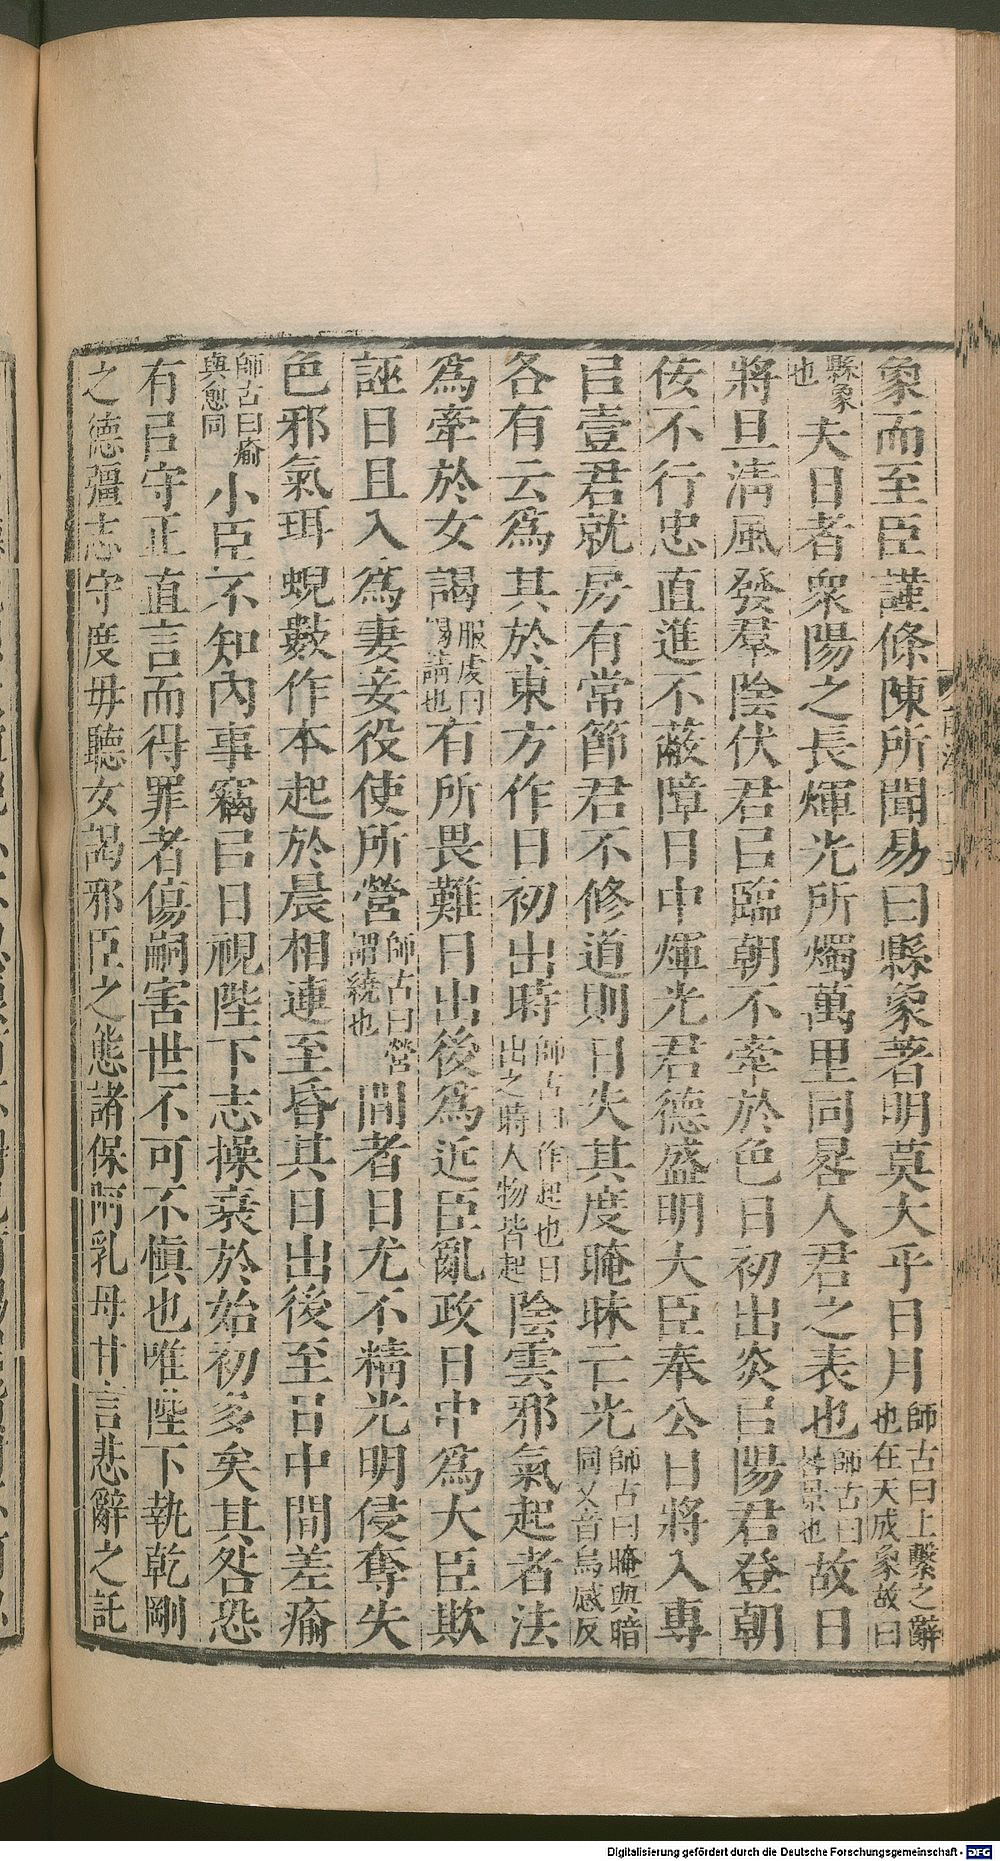 象而至臣謹條陳所聞易曰縣象著明莫大乎日月師古曰上繫之辭也在天成象故曰
縣象也夫日者衆陽之長煇光所燭萬里同晷人君之表也師古曰晷景也故日
將旦淸風發羣陰伏君㠯臨朝不牽於色日初出炎㠯陽君登朝
佞不行忠直進不蔽障日中煇光君德盛明大臣奉公日將入專
㠯壹君就房有常節君不修道則日失其度晻昧亡光師古曰晻與暗同又音烏感反
各有云爲其於東方作日初出時師古曰作起也日出之時人物皆起陰雲邪氣起者法
爲牽於女謁服虔曰謁請也有所畏難日出後爲近臣亂政日中爲大臣欺
誣日且入爲妻妾役使所營師古曰營謂繞也間者日尤不精光明侵奪失
色邪氣珥蜺數作本起於晨相連至昏其日出後至日中間差瘉
師古曰瘉與愈同小臣不知內事竊㠯日視陛下志操衰於始初多矣其咎恐
有㠯守正直言而得罪者傷嗣害世不可不愼也唯陛下執乾剛
之德彊志守度毋聽女謁邪臣之態諸保阿乳母甘言悲辭之託
Digitalisierung gefördert durch die Deutsche Forschungsgemeinschaft - DFG